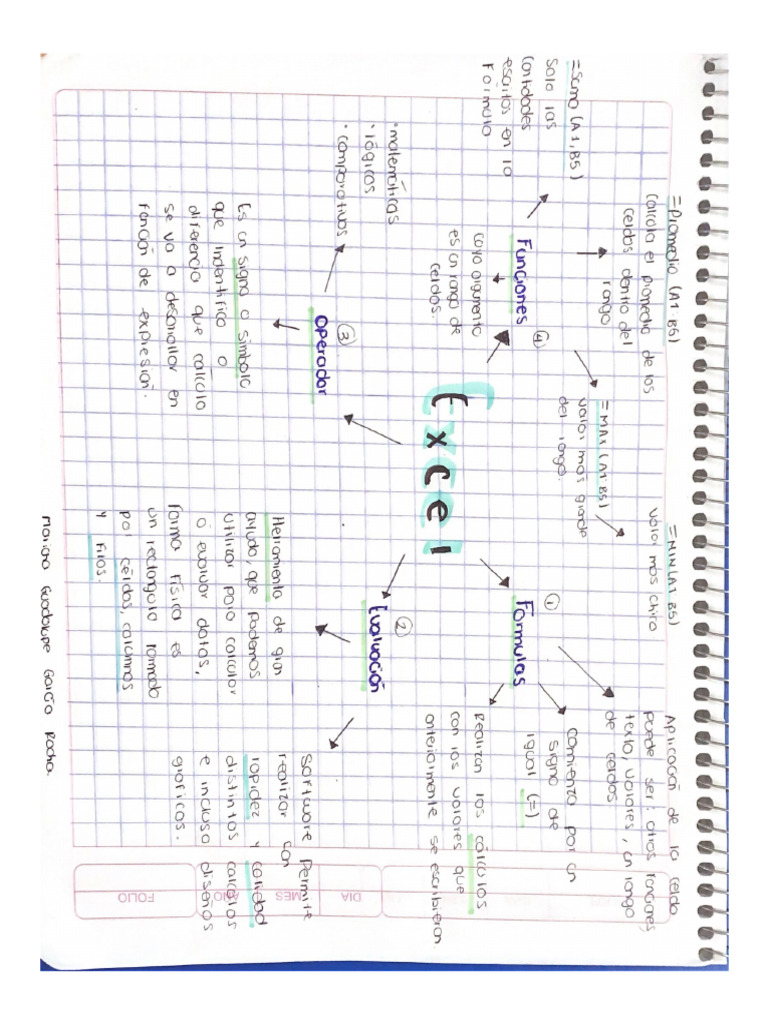 Excel
① Formulas
Aplicación de la celda
puede ser: otros funciones
texto, valores, un rango
de celdas
comienza por un
signo de
igual (=)
Realizan los cálculos
con los valores que
anteriormente se escribieron
② Evaluación
Herramienta de gran
ayuda, que podemos
utilizar para calcular
o evaluar datos,
forma física es
un rectangulo formado
por celdas, columnas
y filas.
Software permite
realizar con
rapidez y calidad
distintos calculos
e incluso diseños
graficos.
③ Operador
•matemáticas
•lógicos
•comparativos
Es un signo o simbolo
que indentifica o
diferencia que calculo
se va a desarrollar en
función de expresión.
④ Funciones
cuyo argumento
es un rango de
celdas.
=Suma (A1,B5)
Solo las
cantidades
escritas en la
Formula
=Promedio (A1:B5)
Calcula el promedio de las
celdas dentro del
rango
=MAX (A1:B5)
valor más grande
del rango.
=MIN (A1:B5)
valor más chico
Mariana Guadalupe García Rocha.
DIA
MES
AÑO
FOLIO